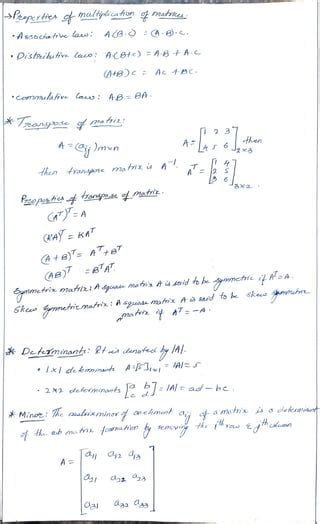 → Properties of multiplication of matrices.
• Associative law: A(B·C) = (A·B)·C.
• Distributive law: A(B+C) = A·B + A·C
(A+B)C = AC + BC.
• commulative law: AB = BA.
* Transpose of matrix:
A = (aij)m×n A = [1 2 3 4 5 6]2×3 then
then transpose matrix is A⁻¹. Aᵀ = [1 4 2 5 3 6]3×2.
Properties of transpose of matrix.
(Aᵀ)ᵀ = A
(KA)ᵀ = KAᵀ
(A+B)ᵀ = Aᵀ+Bᵀ
(AB)ᵀ = BᵀAᵀ.
Symmetric matrix: A square matrix A is said to be symmetric if Aᵀ=A.
Skew symmetric matrix: A square matrix A is said to be skew symmetric
matrix if Aᵀ = -A.
* Determinants: It is denoted by |A|.
• 1×1 determinants A=[5]1×1 = |A|=5
• 2×2 determinants [a b c d] = |A| = ad - bc.
* Minor: The minor of an element aij of a matrix is a determinant
of the sub matrix formation by removing the iᵗʰ row & jᵗʰ column
A = [a11 a12 a13
a21 a22 a23
a31 a32 a33]